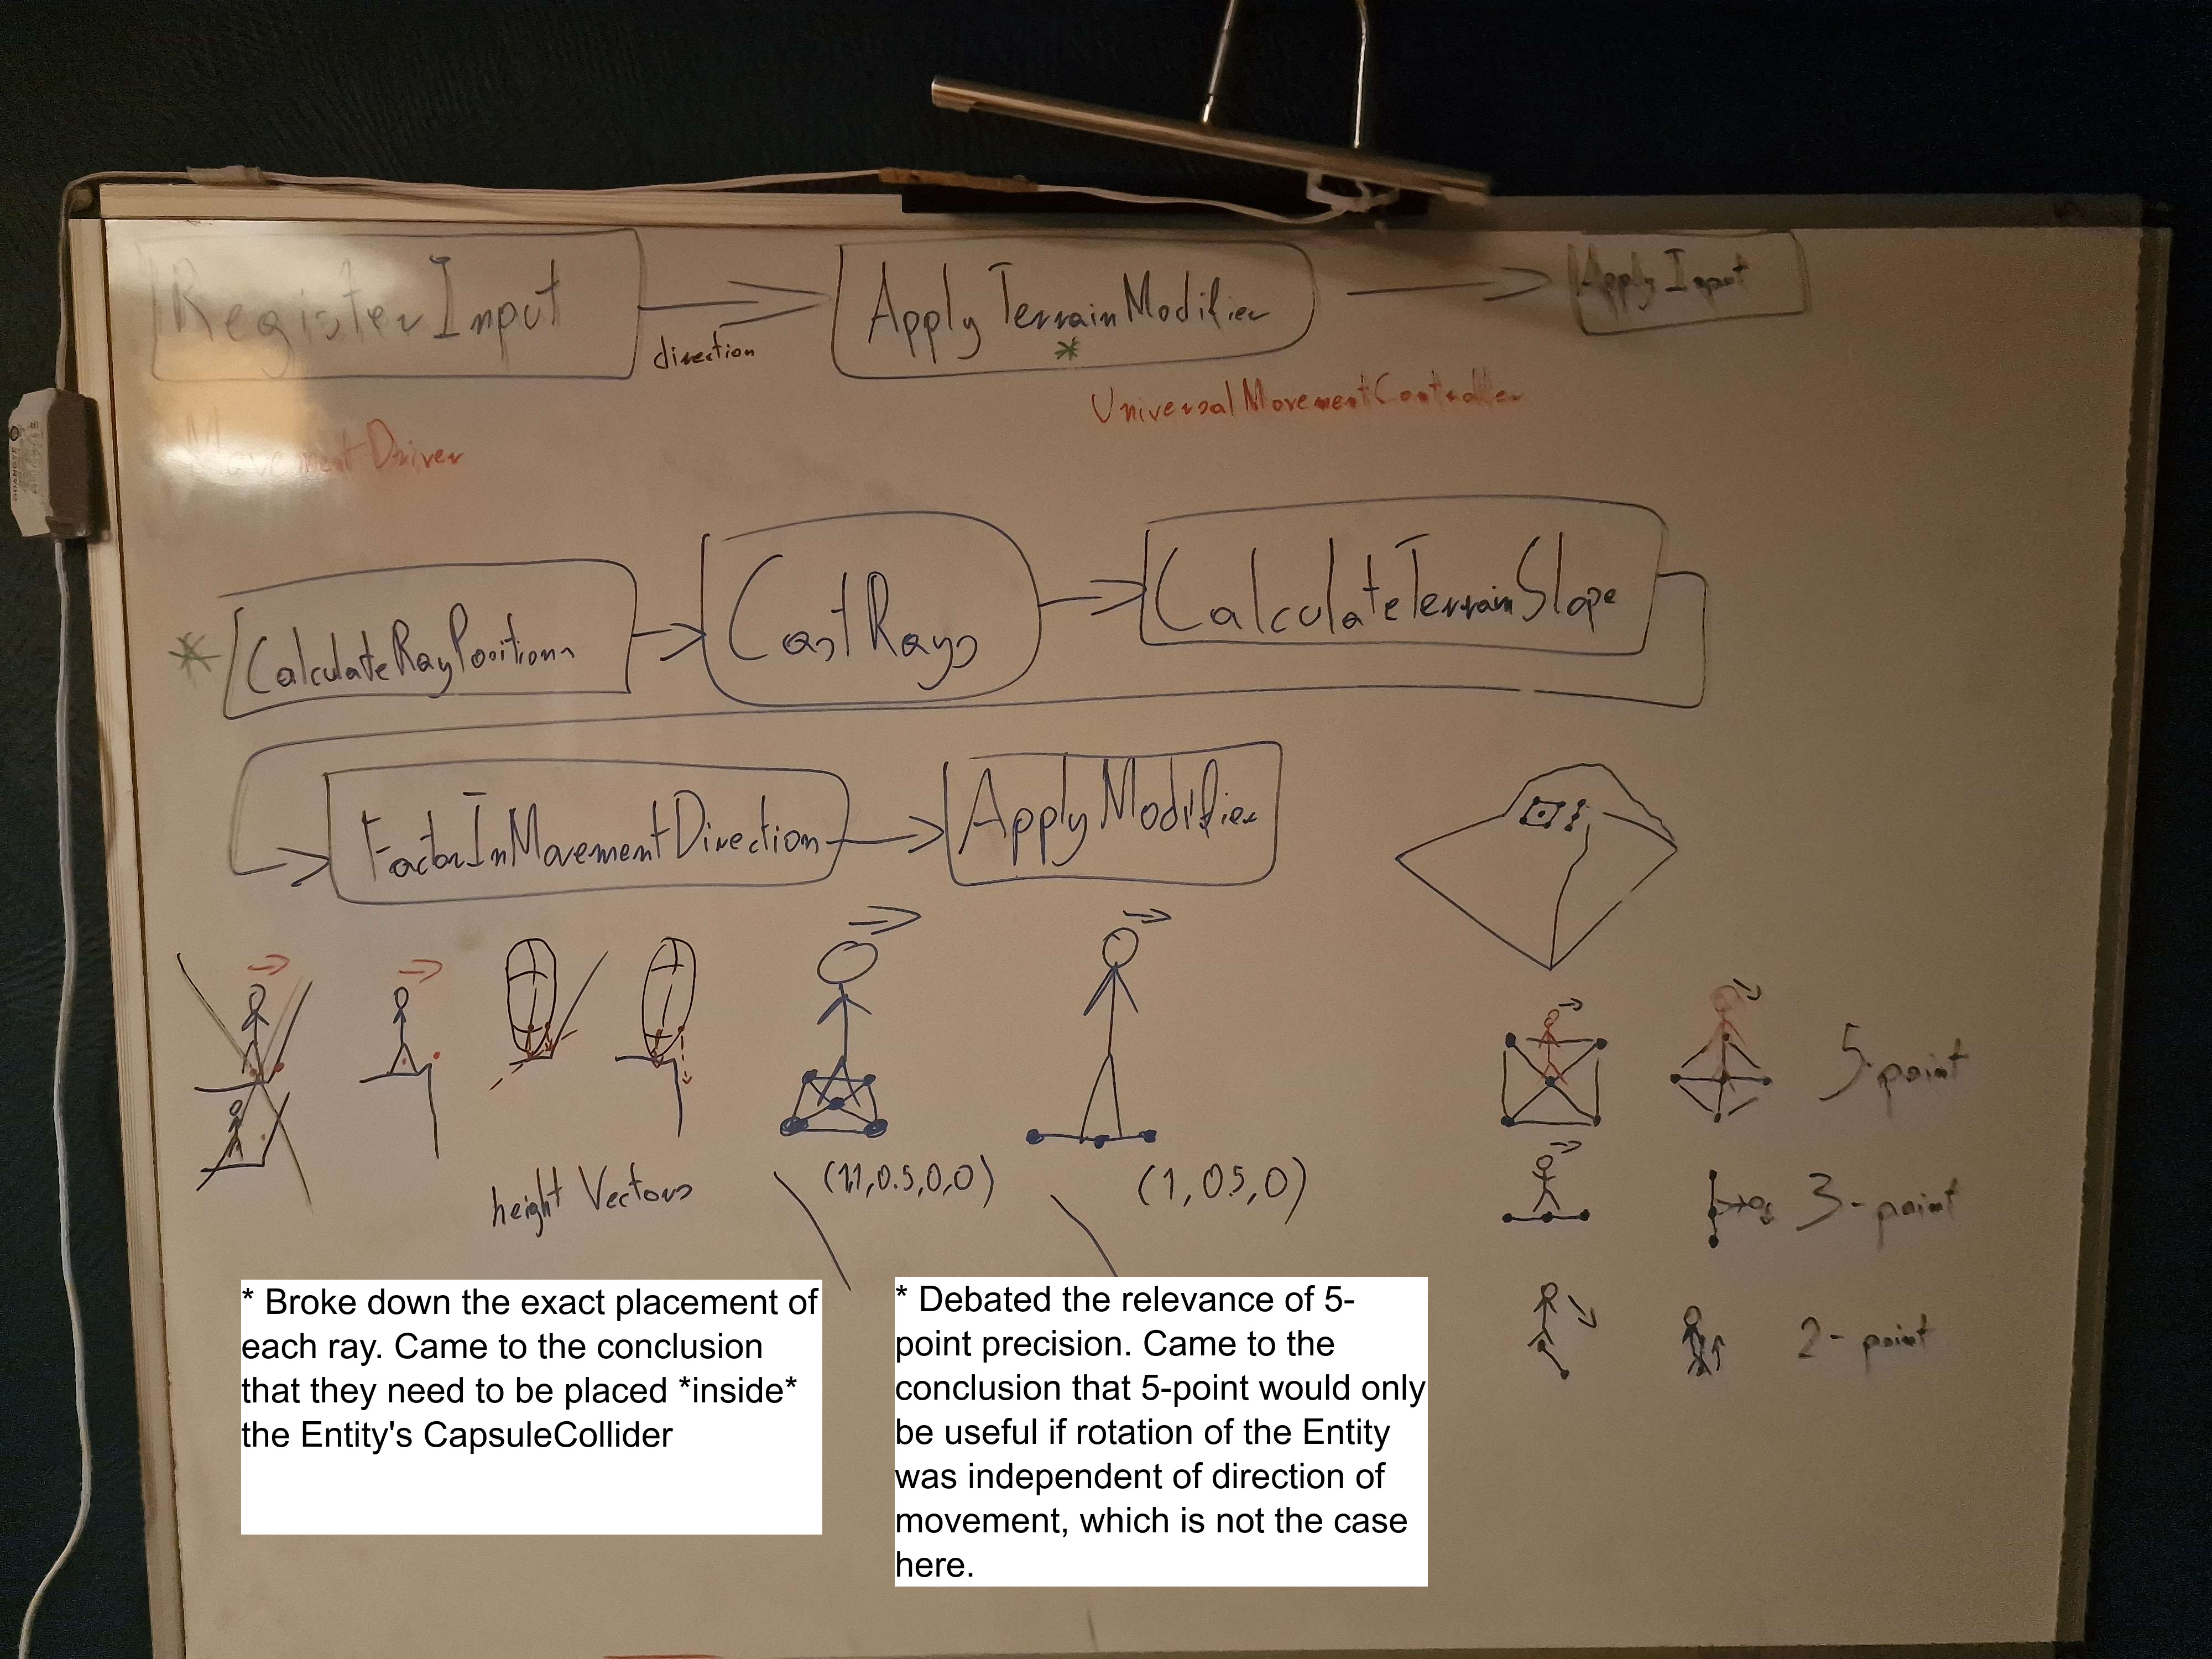 RegisterInput
direction
ApplyTerrainModifier
*
ApplyInput
MovementDriver
UniversalMovementController
*
CalculateRayPositions
CastRays
CalculateTerrainSlope
FactorInMovementDirection
ApplyModifier
5-point
3-point
2-point
height Vectors
(1,1,0.5,0,0)
(1,0.5,0)
* Broke down the exact placement of
each ray. Came to the conclusion
that they need to be placed *inside*
the Entity's CapsuleCollider
* Debated the relevance of 5-
point precision. Came to the
conclusion that 5-point would only
be useful if rotation of the Entity
was independent of direction of
movement, which is not the case
here.